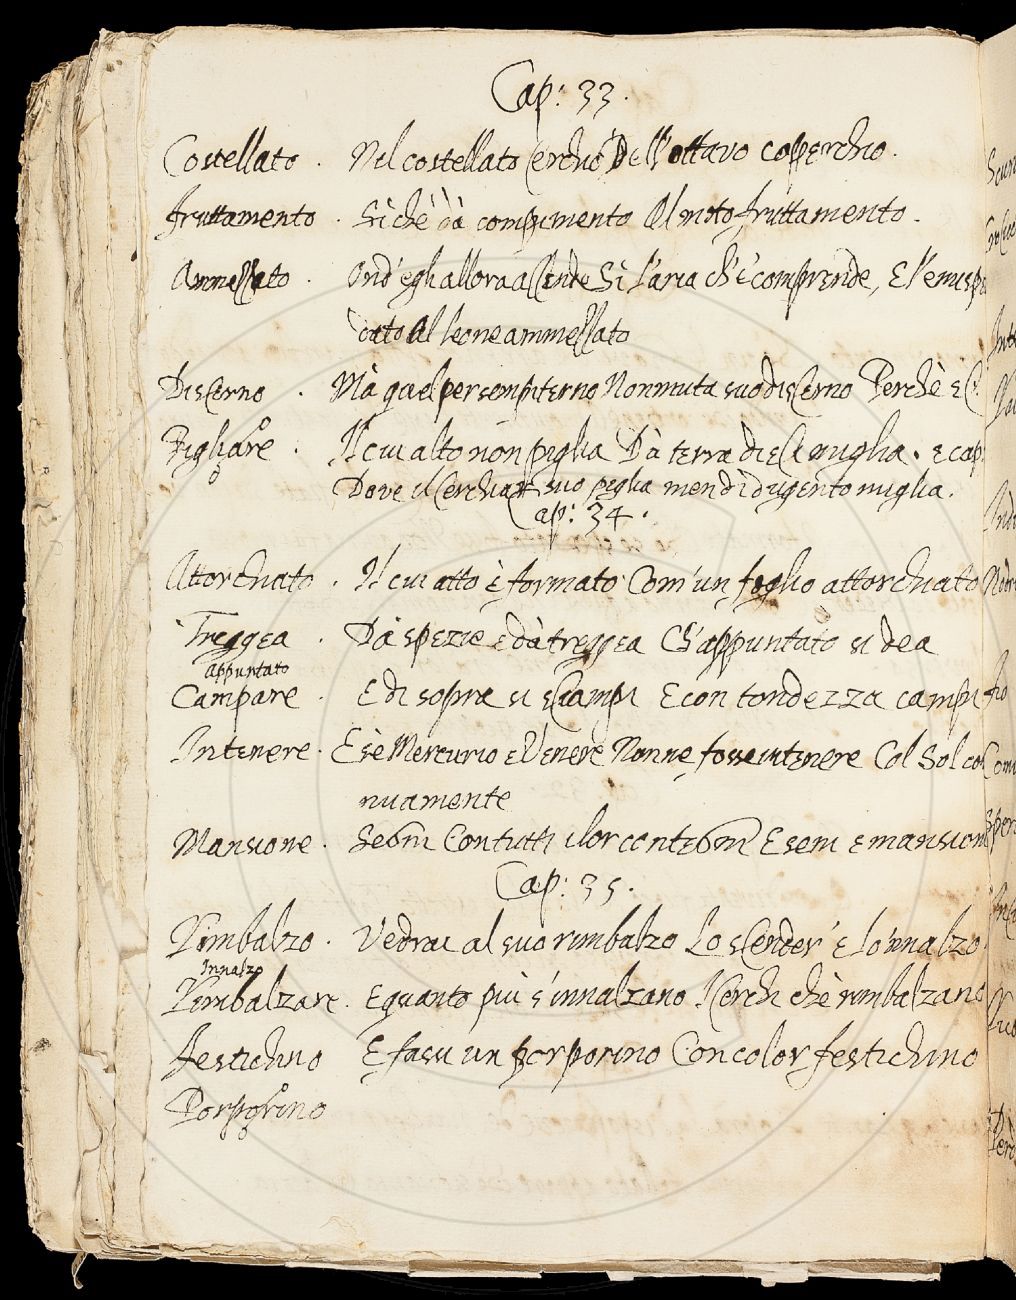 Cap: 33.
Costellato . Nel costellato cerchio Dell'ottavo copperchio.
fruttamento . Si chè dà compimento Al moto, fruttamento.
Ammessato . Ond'egli allora accende Sì l'aria ch'è comprende, E l'emisp
dato Al leone ammessato
Discerno . Mà quel per sempiterno Non muta suo discerno Perchè
Pigliare . Il cui alto non piglia Dà terra dieci miglia. e cap
Dove il Cerchiar suo piglia men di dugento miglia.
Cap: 34.
Attorchiato . Il cui atto è formato Com'un foglio attorchiato
Treggea . Dà spezie e dà treggea Ch'appuntato si dea
appuntato
Campare . E di sopra si scampi E con tondezza campi
Intenere . E sè Mercurio e Venere Nonne fosse intenere Col Sol
nuamente
Mansione . Segni Con tutti i lor contegni E seni e mansion
Cap: 35.
Rimbalzo . Vedrai al suo rimbalzo Lo scender' e lo'nnalzo
Innalzo
Rimbalzare . E quanto più s'innalzano I Cerchi chè rimbalzano
festichino E fassi un porporino Con color festichino
Porporino